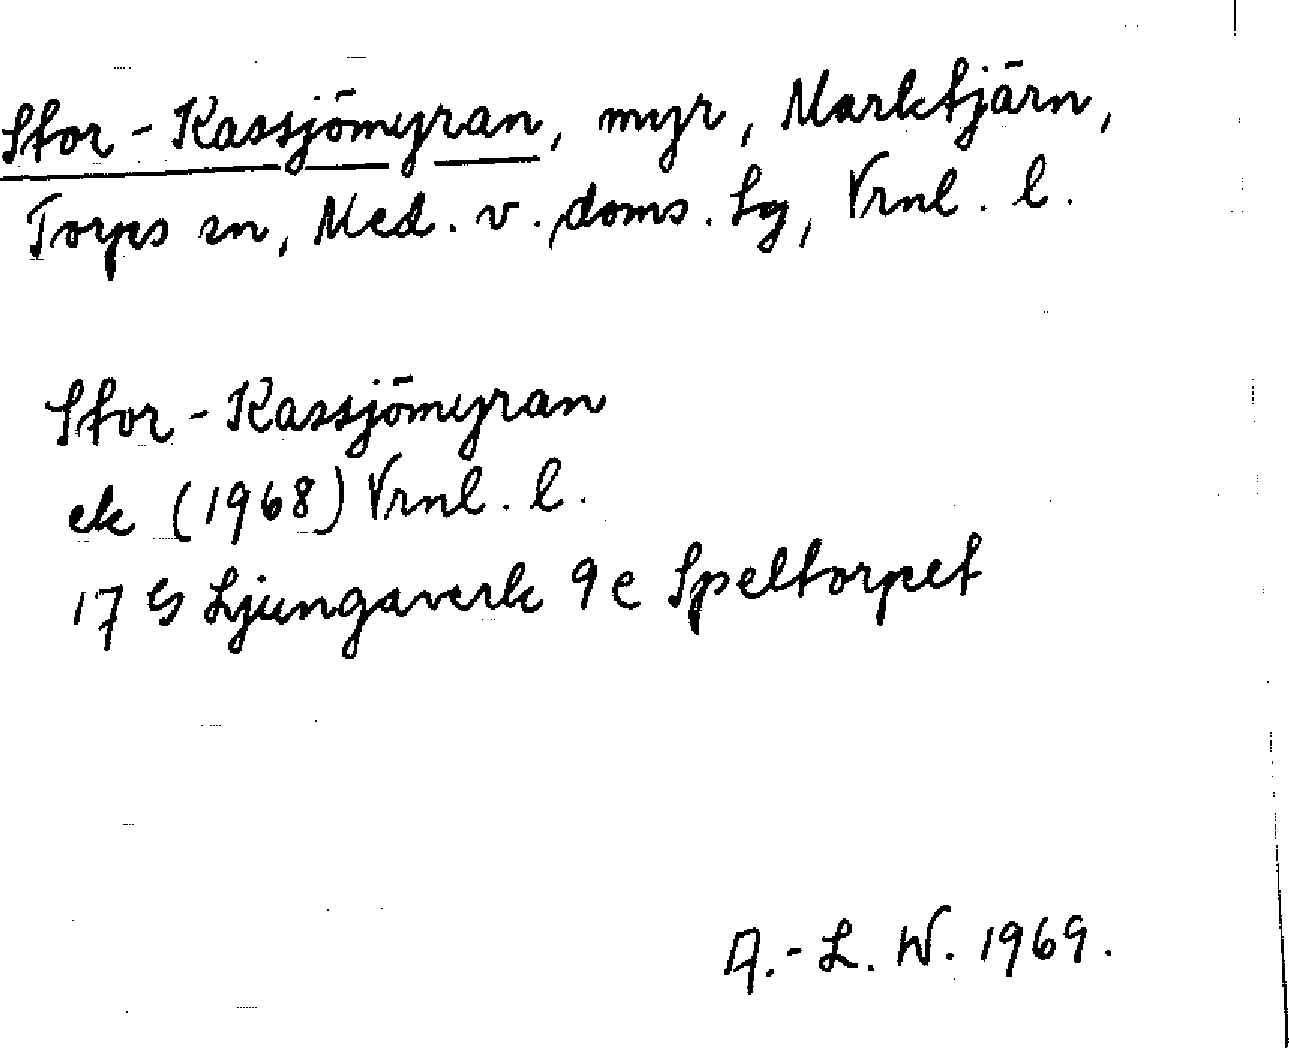 Stor-Kassjömyran, myr, Marktjärn,
Torps sn, Med. v. doms. lg, Vrnl. l.
Stor-Kassjömyran
ek (1968) Vrnl. l.
17 G Ljungaverk 9 e Speltorpet
A.-L. W. 1969.